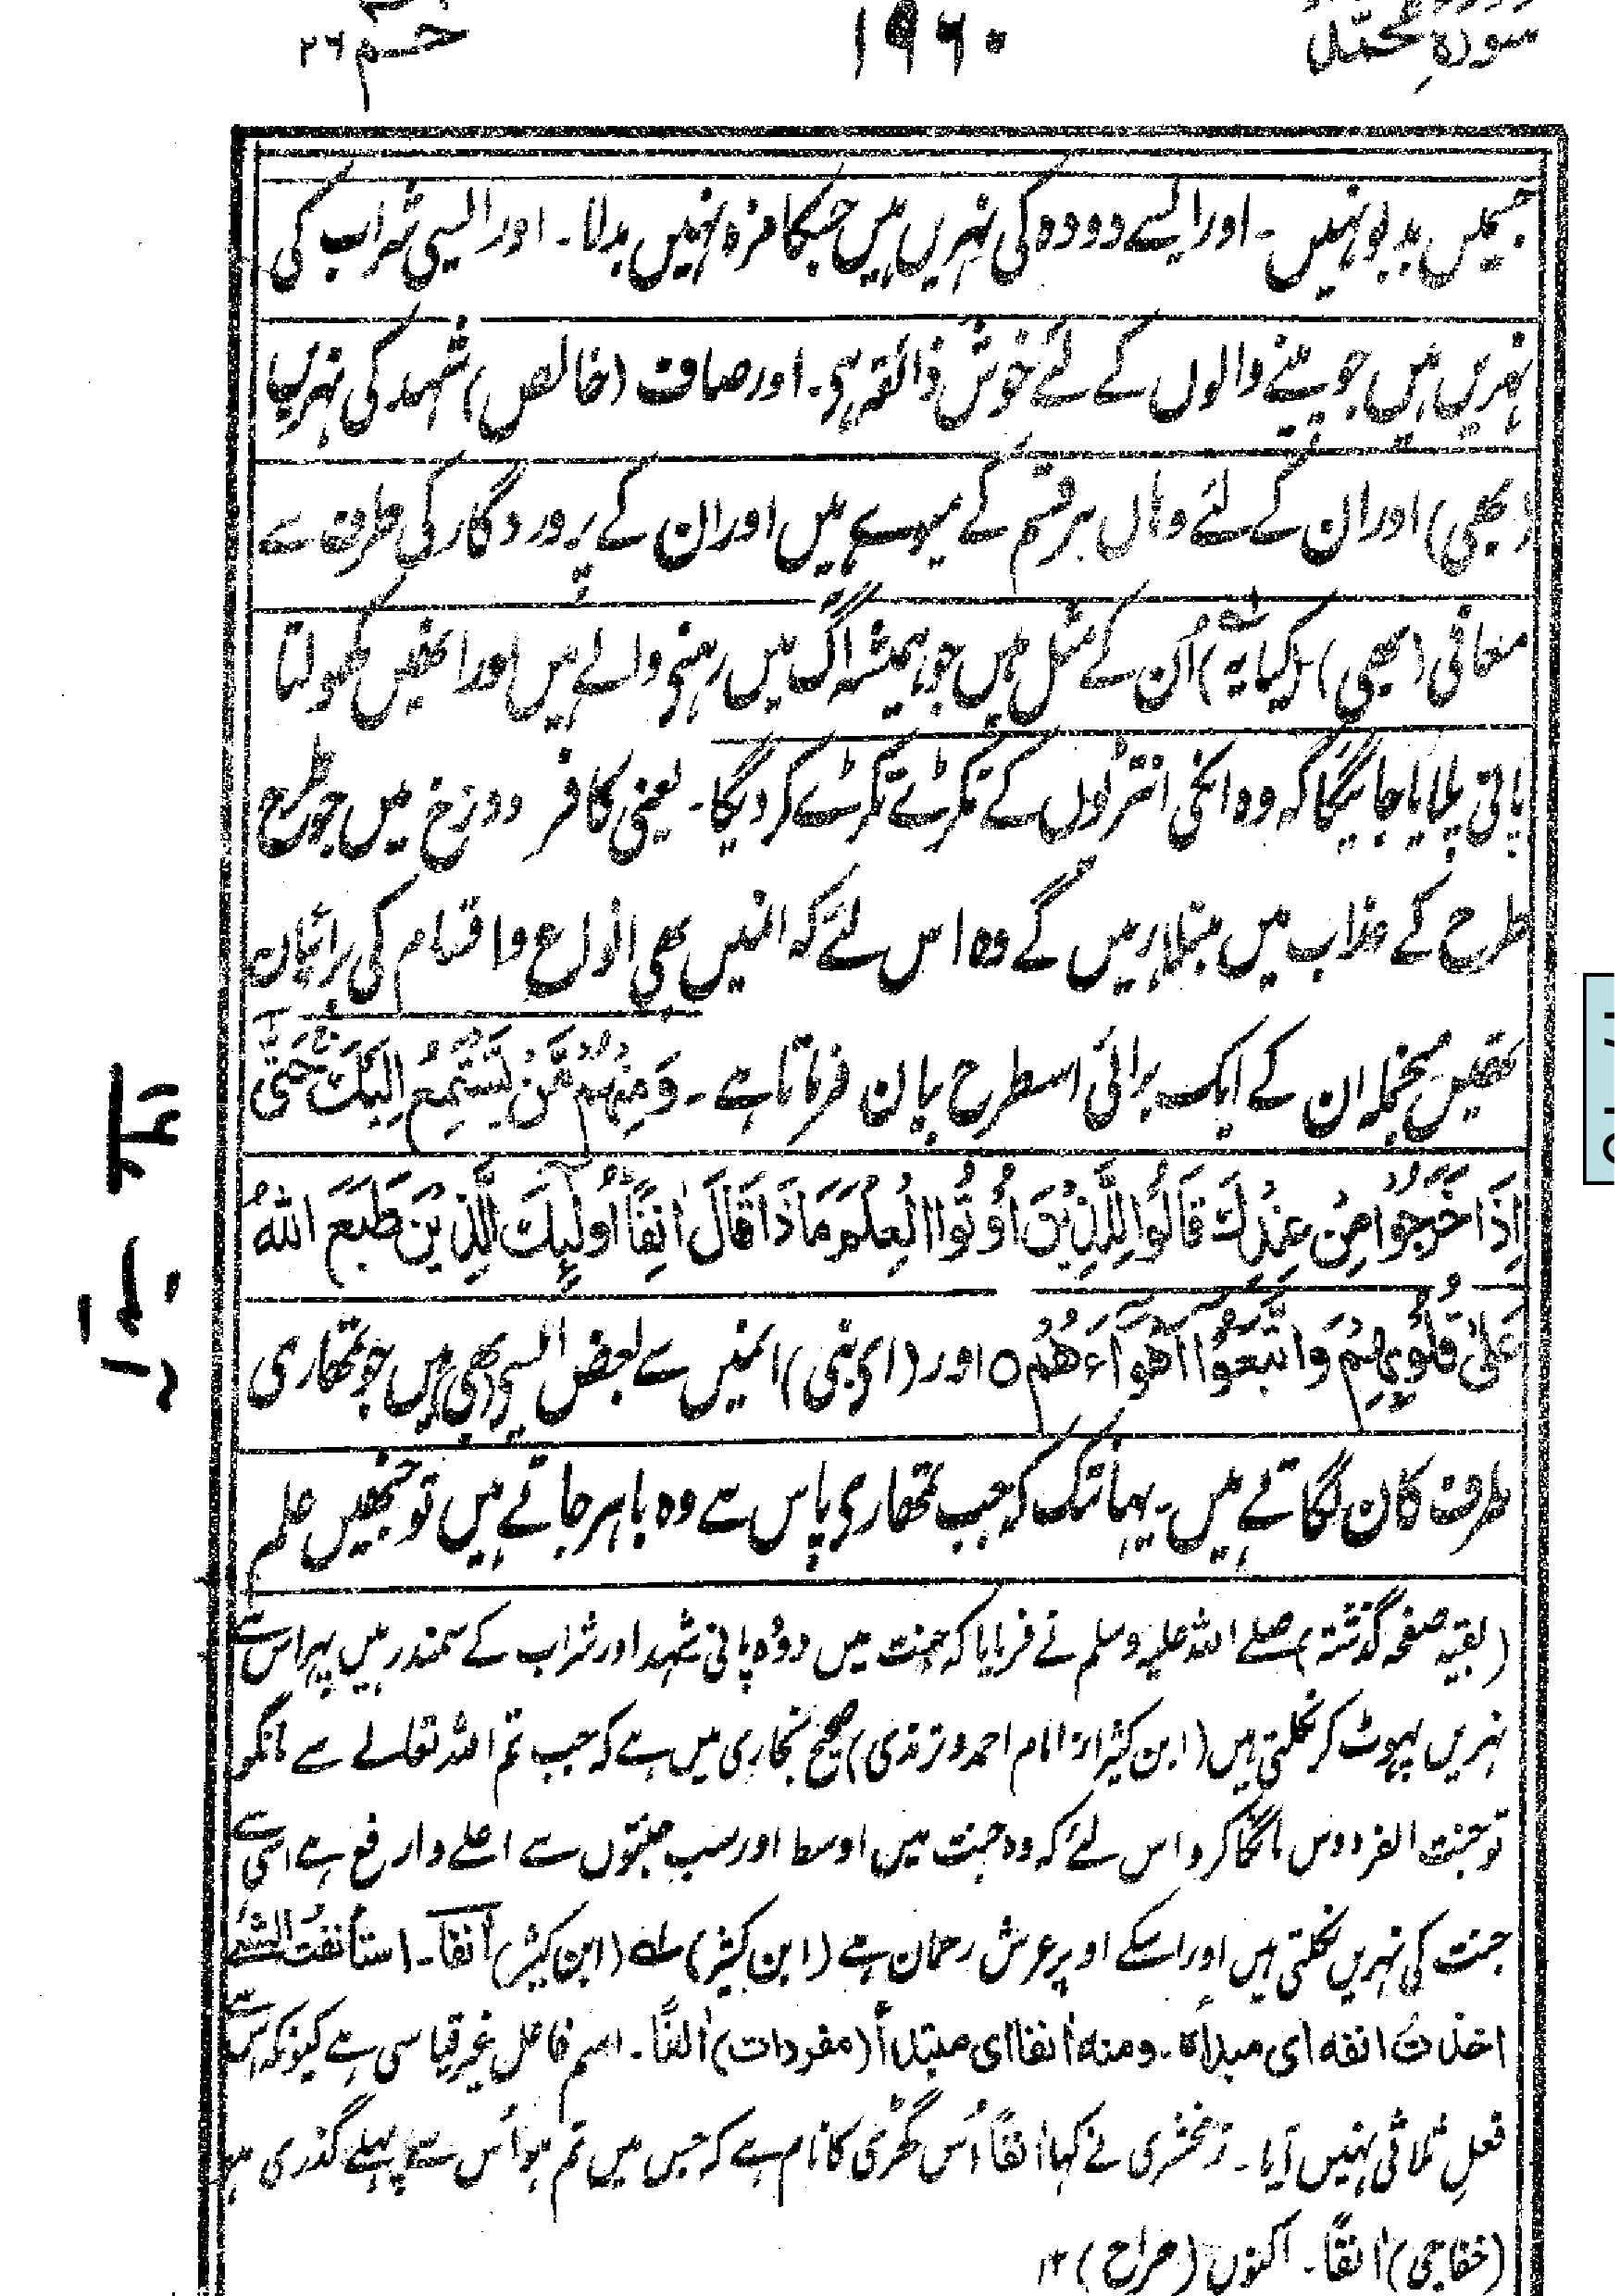 سورۂ محمّد ۱۹۶۰ حٰم ۲۶
جسمیں بدبو نہیں۔ اور ایسے دودہ کی نہریں ہیں جسکا مزہ نہیں بدلا۔ اور ایسی شراب کی
نہریں ہیں جو پینے والوں کے لئے خوش ذائقہ ہی۔ اور صاف (خالص) شہد کی نہریں
(بھی) اور ان کے لئے وہاں ہر قسم کے میوے ہیں اور ان کے پروردگار کی طرف سے
معافی (بھی) (کیا یہ) اُن کے مثل ہیں جو ہمیشہ آگ میں رہنی والے ہیں اور انھیں کھولتا
پانی پلایا جائیگا کہ وہ انکی انتڑیوں کے ٹکڑے ٹکڑے کر دیگا۔ یعنی کافر دوزخ میں جو طرح
طرح کے عذاب میں مبتلا رہیں گے وہ اس لئے کہ انمیں بھی انواع و اقسام کی برائیاں
تھیں منجملہ ان کے ایک برائی اسطرح بیان فرماتا ہے۔ وَمِنْهُمْ مَّنْ يَّسْتَمِعُ اِلَيْكَ حَتّٰى
اِذَا خَرَجُوْا مِنْ عِنْدِكَ قَالُوْا لِلَّذِيْنَ اُوْتُوا الْعِلْمَ مَاذَا قَالَ اٰنِفًا اُولٰٓئِكَ الَّذِيْنَ طَبَعَ اللهُ
عَلٰى قُلُوْبِهِمْ وَاتَّبَعُوْٓا اَهْوَآءَهُمْ ○ اور (ای نبی) انمیں سے بعض ایسے بھی ہیں جو تمھاری
طرف کان لگاتے ہیں۔ یہانتک کہ جب تمھاری پاس سے وہ باہر جاتے ہیں تو جنھیں علم
(بقیہ صفحہ گذشتہ) صلے اللہ علیہ وسلم نے فرمایا کہ جنت میں دودہ پانی شہد اور شراب کے سمندر ہیں پہر اس سے
نہریں پہوٹ کر نکلتی ہیں (ابن کثیر از امام احمد و ترمذی) صحیح بخاری میں ہے کہ جب تم اللہ تعالے سے مانگو
تو جنت الفردوس مانگا کرو اس لئے کہ وہ جنت میں اوسط اور سب جنتوں سے اعلے و ارفع ہے اسی سے
جنت کی نہریں نکلتی ہیں اور اسکے اوپر عرش رحمان ہے (ابن کثیر) (ابن کثیر) اٰنفا۔ استأنفتُ الشئ
اخذتُ انفه ای مبدأه۔ ومنه اٰنفا ای مبتدأ (مفردات) اٰنفًا۔ اسم فاعل غیر قیاسی ہے کیونکہ اس سے
فعلِ ثلاثی نہیں آیا۔ زمخشری نے کہا اٰنفًا اُس گھڑی کا نام ہے کہ جس میں تم ہو اُس سے پہلے گذری ہو
(خفاجی) اٰنفًا۔ اکنوں (صراح) ۱۲